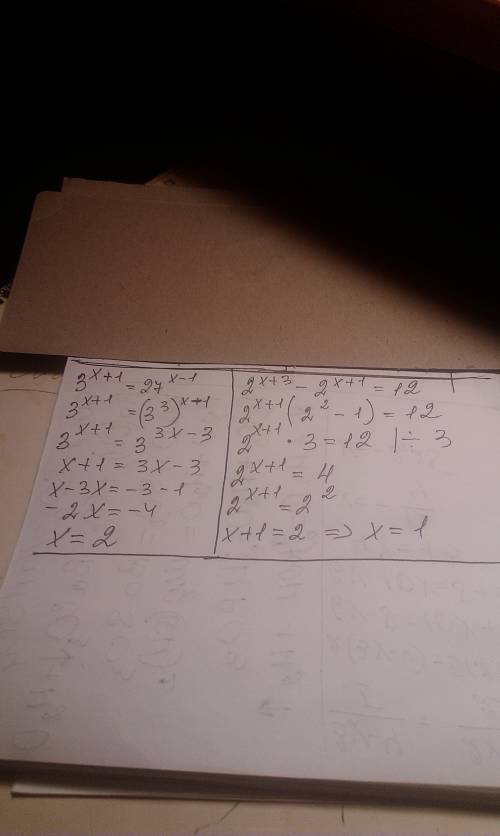 3^{x+1} = 27^{x-1}
3^{x+1} = (3^3)^{x-1}
3^{x+1} = 3^{3x-3}
x+1 = 3x-3
x-3x = -3-1
-2x = -4
x = 2
2^{x+3} - 2^{x+1} = 12
2^{x+1}(2^2 - 1) = 12
2^{x+1} · 3 = 12 | ÷ 3
2^{x+1} = 4
2^{x+1} = 2^2
x+1 = 2 ⇒ x = 1